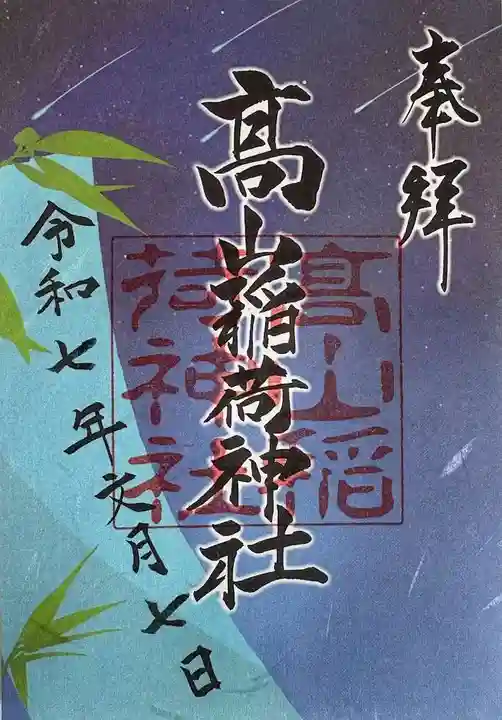 奉拝
髙山稲荷神社
髙山稲荷神社
令和七年文月七日